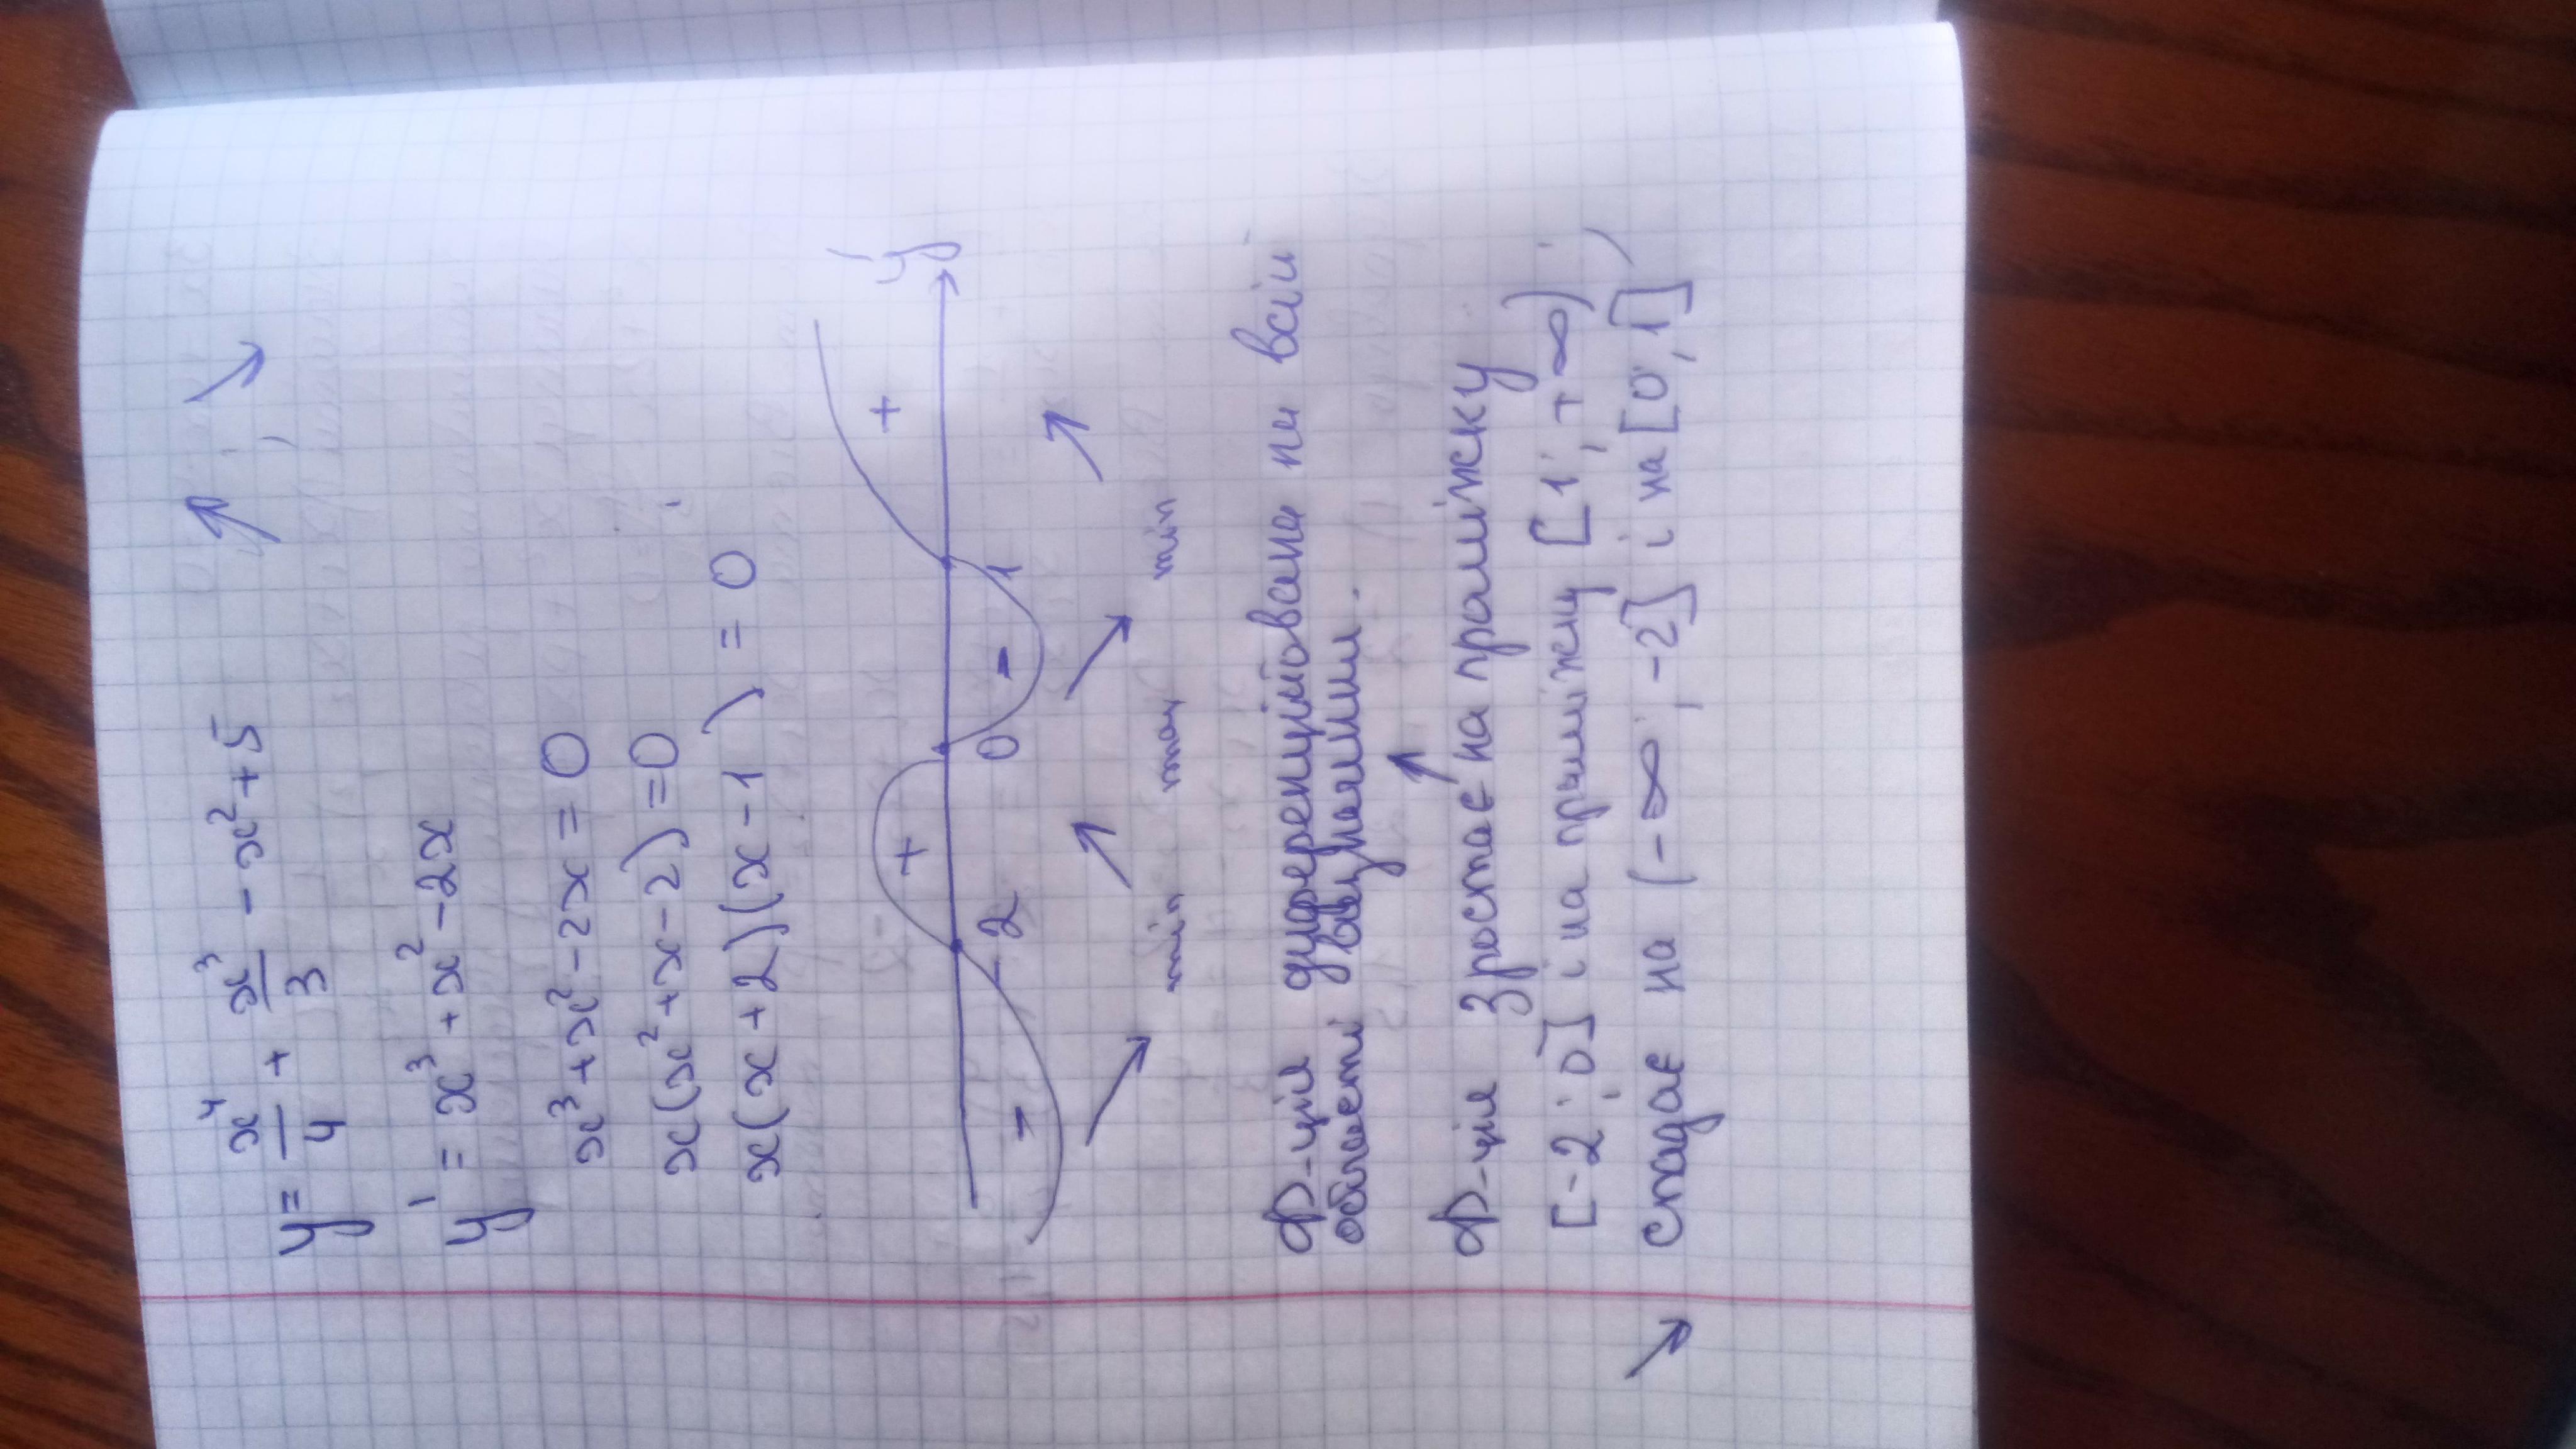 y = x⁴/4 + x³/3 - x² + 5 ↗ ; ↘
y' = x³ + x² - 2x
x³ + x² - 2x = 0
x(x² + x - 2) = 0
x(x + 2)(x - 1) = 0
y'
- + - +
-2 0 1
↘ ↗ ↘ ↗
min max min
Ф-ція диференційована на всій
області визначення.
↗
Ф-ція зростає на проміжку
[-2; 0] і на проміжку [1; +∞)
↘ спадає на (-∞; -2] і на [0; 1]